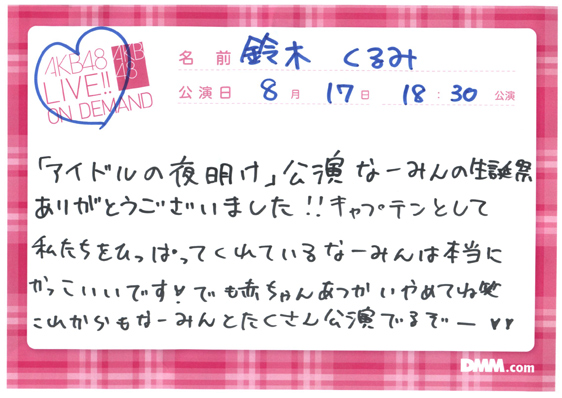 AKB48
LIVE!!
ON DEMAND
AKB
48
名前 鈴木 くるみ
公演日 8月 17日 18:30 公演
「アイドルの夜明け」公演 なーみんの生誕祭
ありがとうございました!!キャプテンとして
私たちをひっぱってくれているなーみんは本当に
かっこいいです♥でも赤ちゃんあつかいやめてね笑
これからもなーみんとたくさん公演でるぞー ♥♥
DMM.com